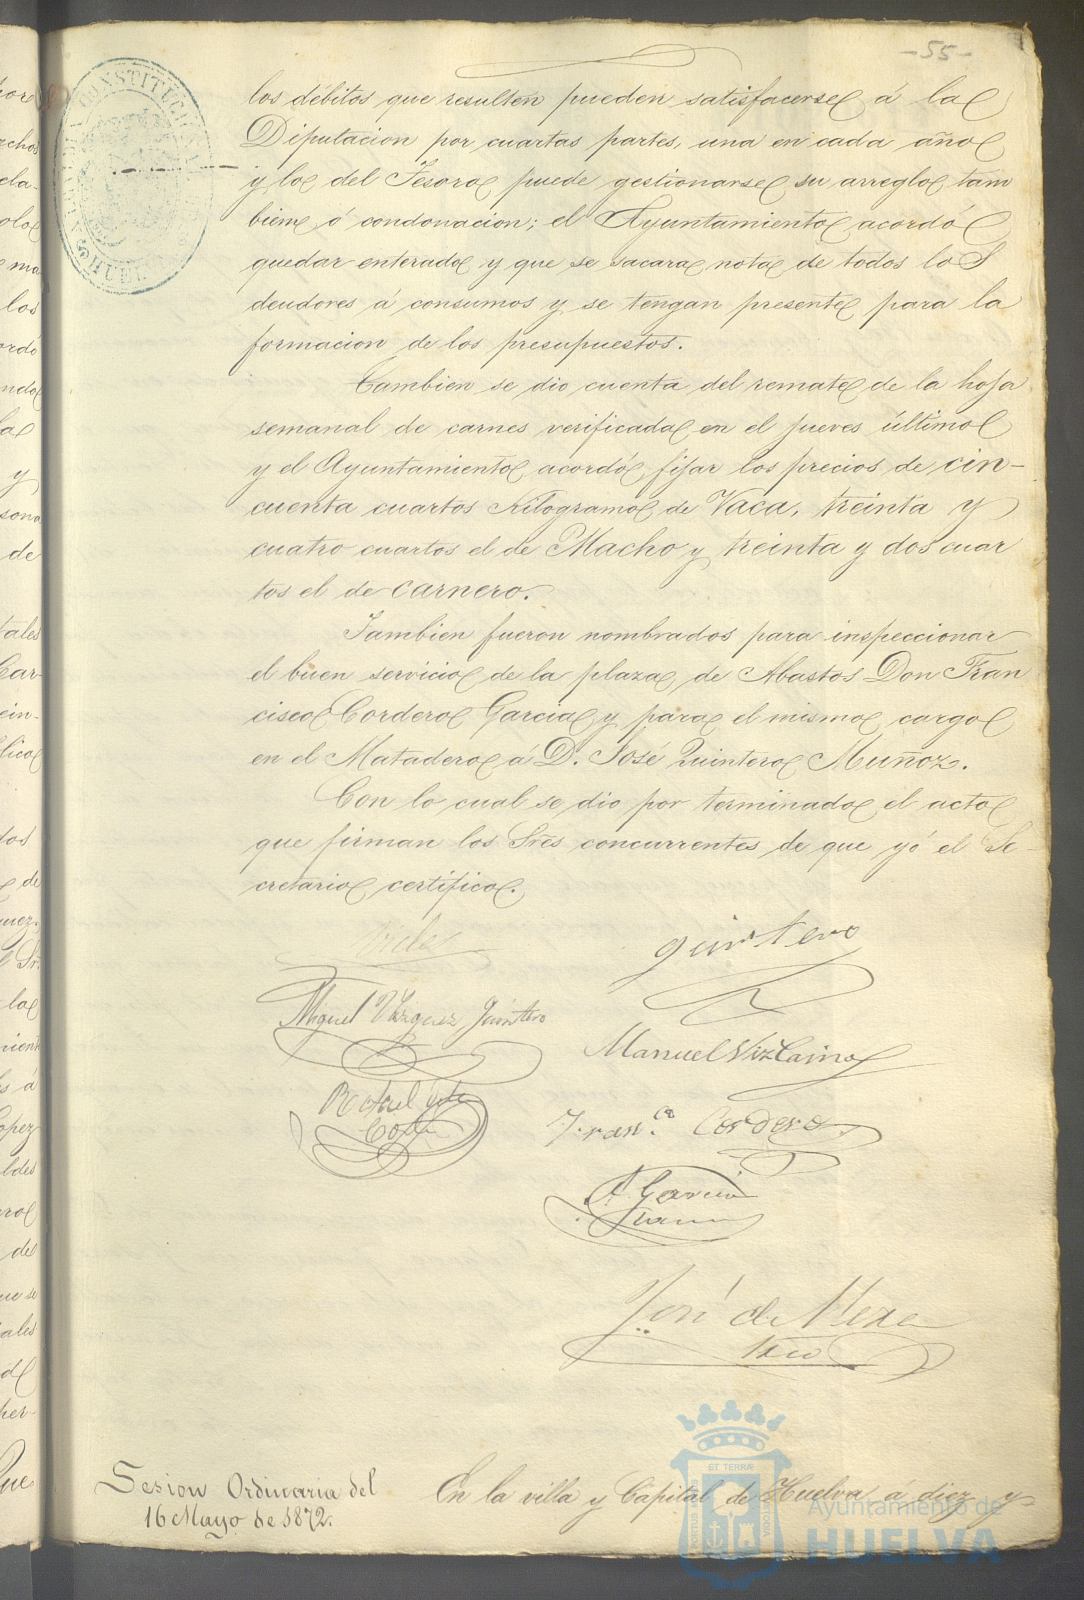 -55-
los débitos que resulten pueden satisfacerse á la
Diputacion por cuartas partes, una en cada año
y los del Tesoro puede gestionarse su arreglo tam
bien ó condonacion; el Ayuntamiento acordó
quedar enterado y que se sacara nota de todos los
deudores á consumos y se tengan presente para la
formacion de los presupuestos.
Tambien se dio cuenta del remate de la hoja
semanal de carnes verificada en el jueves último
y el Ayuntamiento acordó fijar los precios de cin-
cuenta cuartos Kilogramo de Vaca, treinta y
cuatro cuartos el de Macho y treinta y dos cuar
tos el de carnero.
Tambien fueron nombrados para inspeccionar
el buen servicio de la plaza de Abastos Don Fran
cisco Cordero Garcia y para el mismo cargo
en el Matadero á D. José Quintero Muñoz.
Con lo cual se dio por terminado el acto
que firman los Sres concurrentes de que yó el Se-
cretario certifico.
Quintero
Miguel Vázquez Quintero
Manuel Vizcaino
Rafael
Fran.co Cordero
A. Garcia
José de
Srio
Sesion Ordinaria del
16 Mayo de 1872.
En la villa y Capital de Huelva á diez y
Ayuntamiento de
HUELVA